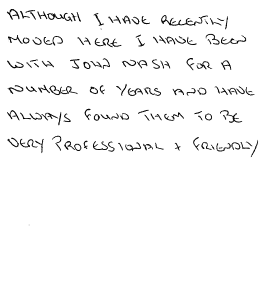 ALTHOUGH I HAVE RECENTLY
MOVED HERE I HAVE BEEN
WITH JOHN NASH FOR A
NUMBER OF YEARS AND HAVE
ALWAYS FOUND THEM TO BE
VERY PROFESSIONAL + FRIENDLY